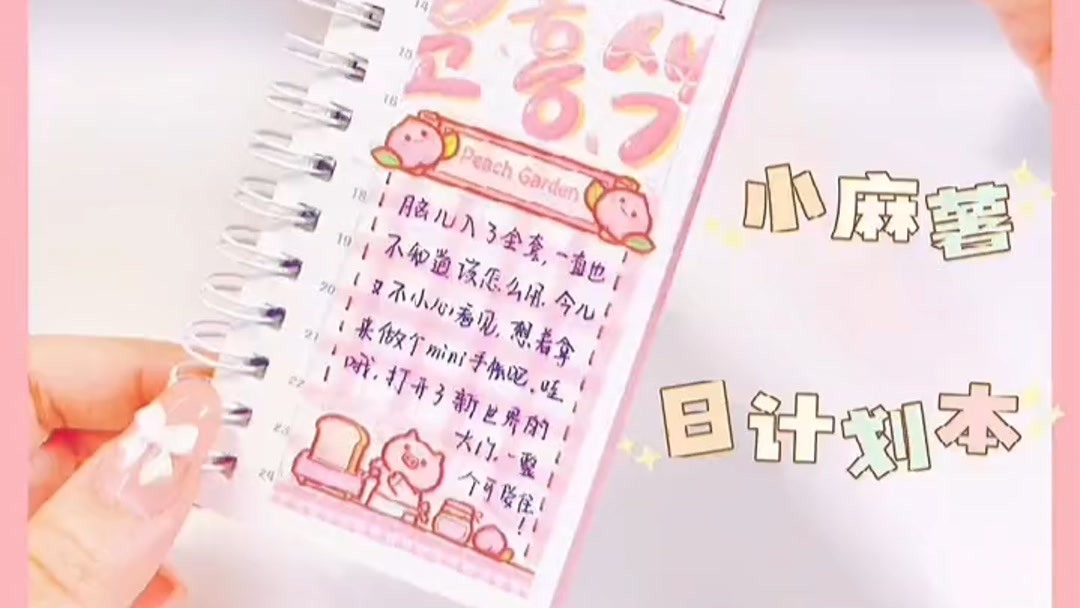 14
15
16
Peach Garden
18
脑儿入了全套，一直也
19
不知道该怎么用.今儿
20
又不小心看见，想着拿
21
来做个mini手帐吧.哇
22
哦，打开了新世界的
23
大门.一整
24
个可爱住
！
小麻薯
日计划本